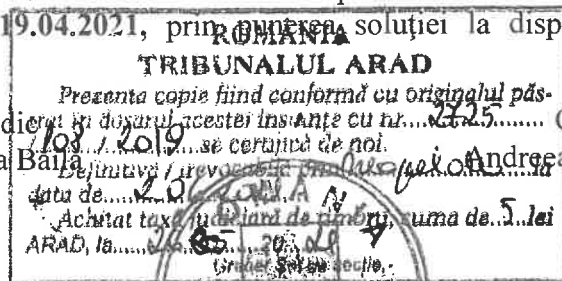 19.04.2021, prin punerea soluției la disp
ROMÂNIA
TRIBUNALUL ARAD
Prezenta copie fiind conformă cu originalul păs-
trat în dosarul acestei instanțe cu nr. 2725
/108/2019 se certifică de noi.
a Băila Definitivă / irevocabilă prin Andreea
data de
Achitat taxă judiciară de timbru, suma de 5 lei
ARAD, la
Grefier Șef de secție,